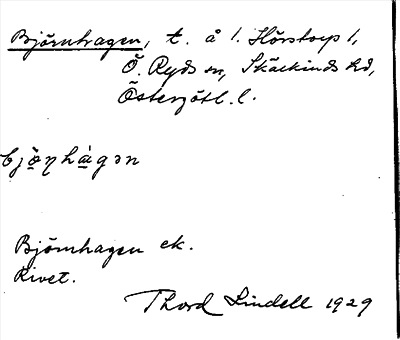 Björnhagen, t. å 1. Hörstorp 1,
Ö. Ryds sn, Skärkinds hd,
Östergötl. l.
bjö̀ṇhàgən
Björnhagen ek.
Rivet.
Thord Lindell 1929